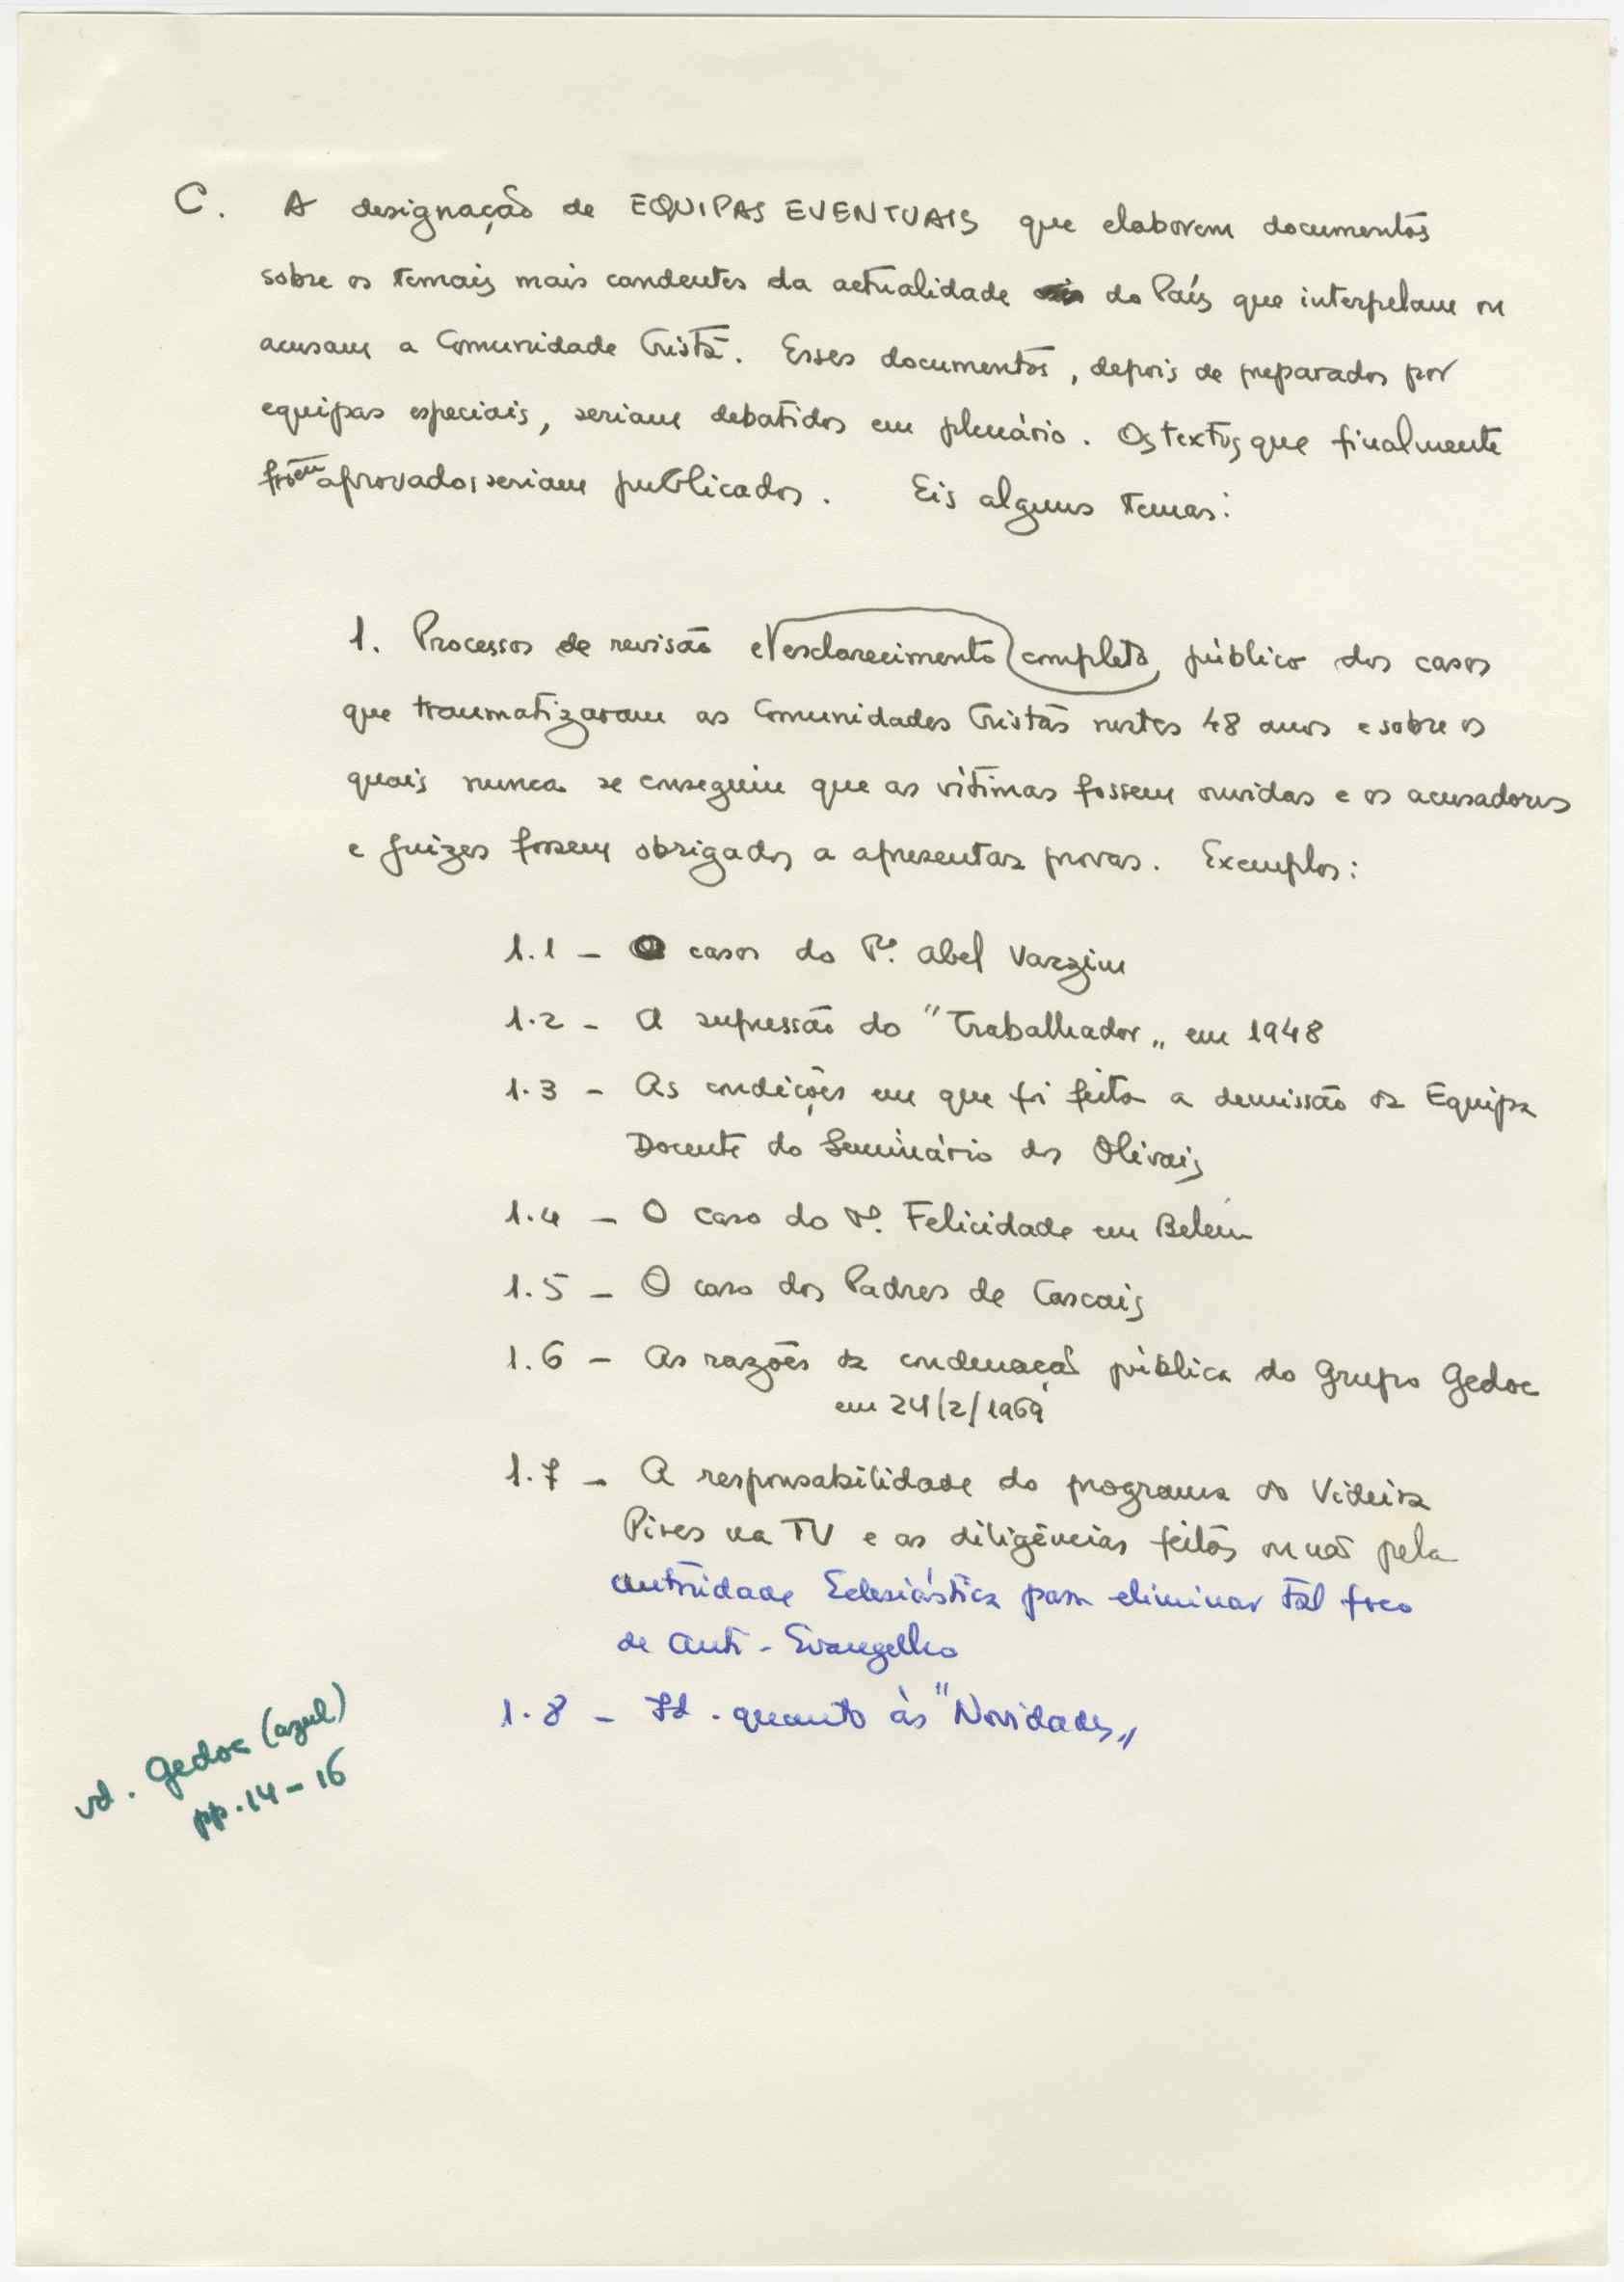 C. A designação de EQUIPAS EVENTUAIS que elaborem documentos
sobre os temais mais candentes da actualidade do País que interpelam ou
acusam a Comunidade Cristã. Esses documentos, depois de preparados por
equipas especiais, seriam debatidos em plenário. Os textos que finalmente
forem aprovados seriam publicados. Eis alguns temas:
1. Processos de revisão e esclarecimento completo público dos casos
que traumatizaram as Comunidades Cristãs nestes 48 anos e sobre os
quais nunca se conseguiu que as vítimas fossem ouvidas e os acusadores
e juízes fossem obrigados a apresentar provas. Exemplos:
1.1 - casos do Pe. Abel Varzim
1.2 - A supressão do "Trabalhador" em 1948
1.3 - As condições em que foi feita a demissão da Equipa
Docente do Seminário dos Olivais
1.4 - O caso do Pe. Felicidade em Belém
1.5 - O caso dos Padres de Cascais
1.6 - As razões da condenação pública do Grupo Gedoc
em 24/2/1969
1.7 - A responsabilidade do programa do Videira
Pires na TV e as diligências feitas ou não pela
autoridade Eclesiástica para eliminar tal foco
de anti-Evangelho
1.8 - Id. quanto às "Novidades"
vd. Gedoc (azul)
pp. 14-16